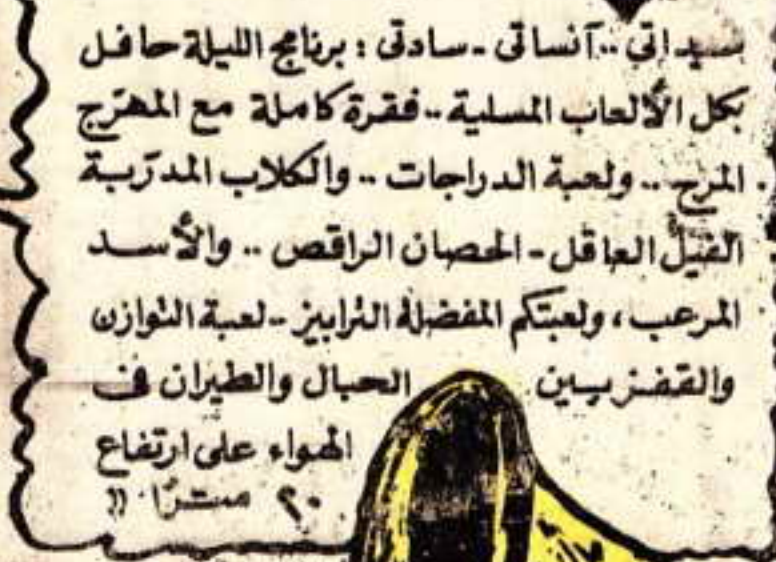 سيداتي .. آنساتى - سادتى : برنامج الليلة حافل
بكل الألعاب المسلية .. فقرة كاملة مع المهرّج
المرح .. ولعبة الدراجات .. والكلاب المدرّبة
الفيل العاقل - الحصان الراقص .. والأسد
المرعب ، ولعبتكم المفضلة الترابيز .. لعبة التوازن
والقفز بين الحبال والطيران فى
الهواء على ارتفاع
٢٠ مترًا "